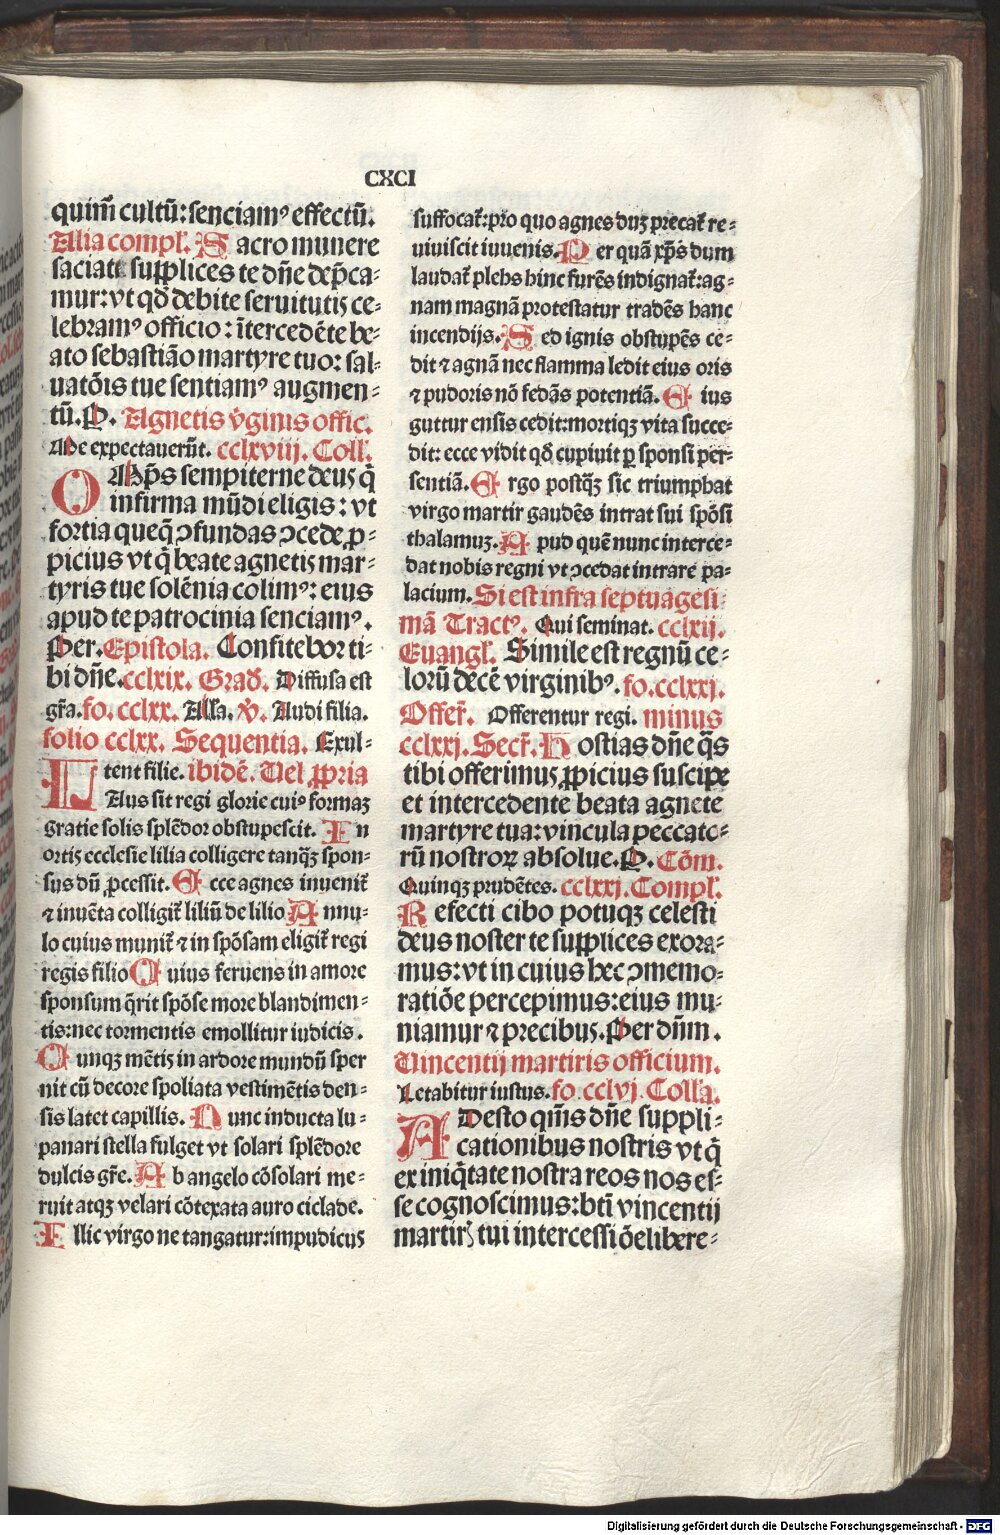 CXCI
quim̄ cultū: senciamꝰ effectū.
Alia compl'. Sacro munere
saciati supplices te dn̄e dep̄ca-
mur: vt qđ debite seruitutis ce-
lebramꝰ officio: ītercedēte be-
ato sebastiāo martyre tuo: sal-
uatōis tue sentiamꝰ augmen-
tū. P. Agnetis v̄ginis offic.
Me expectauerūt. cclxviij. Coll'.
OMp̄s sempiterne deus q̄
infirma mūdi eligis: vt
fortia queq̄ ↄfundas ↄcede ꝓ-
picius vt q̄ beate agnetis mar-
tyris tue solēnia colimꝰ: eius
apud te patrocinia senciamꝰ.
Per. Epistola. Confitebor ti-
bi dn̄e. cclxix. Grad'. Diffusa est
gr̄a. fo. cclxx. Alla. v̄. Audi filia.
folio cclxx. Sequentia. Exul-
tent filie. ibidē. Uel ꝓpria
LAus sit regi glorie cuiꝰ formaꝫ
gratie solis splēdor obstupescit. In
ortis ecclesie lilia colligere tanqꝫ spon-
sus dū ꝓcessit. Ecce agnes inuenit̄
⁊ inuēta colligit̄ liliū de lilio Annu-
lo cuius munit̄ ⁊ in spōsam eligit̄ regi
regis filio Cuius feruens in amore
sponsum q̄rit spōse more blandimen-
tis: nec tormentis emollitur iudicis.
Cunqꝫ mētis in ardore mundū sper
nit cū decore spoliata vestimētis den-
sis latet capillis. Nunc inducta lu-
panari stella fulget vt solari splēdore
dulcis gr̄e. Ab angelo cōsolari me-
ruit atqꝫ velari cōtexata auro ciclade.
Illic virgo ne tangatur: impudicus
suffocat̄: pro quo agnes duꝫ precat̄ re-
uiuiscit iuuenis. Per quā xp̄s dum
laudat̄ plebs hinc furēs indignat̄: ag-
nam magnā protestatur tradēs hanc
incendijs. Sed ignis obstupēs ce-
dit ⁊ agnā nec flamma ledit eius oris
⁊ pudoris nō fedās potentiā. Eius
guttur ensis cedit: mortiqꝫ vita succe-
dit: ecce vidit qđ cupiuit ꝑ sponsi per-
sentiā. Ergo postqꝫ sic triumphat
virgo martir gaudēs intrat sui spōsi
thalamuꝫ. Apud quē nunc interce-
dat nobis regni vt ↄcedat intrare pa-
lacium. Si est infra septuagesi
mā Tractꝰ. Qui seminat. cclxij.
Euangl'. Simile est regnū ce-
lorū decē virginibꝰ. fo. cclxxj.
Offer̄. Offerentur regi. minus
cclxxj. Secr̄. Hostias dn̄e q̄s
tibi offerimus ꝓpicius suscipe
et intercedente beata agnete
martyre tua: vincula peccato-
rū nostroꝝ absolue. P. Cōm.
Quinqꝫ prudētes. cclxxj. Compl'.
Refecti cibo potuqꝫ celesti
deus noster te supplices exora-
mus: vt in cuius hec ↄmemo-
ratiōe percepimus: eius mu-
niamur ⁊ precibus. Per dn̄m.
Uincentij martiris officium.
Letabitur iustus. fo. cclvj. Colla.
ADesto qm̄s dn̄e suppli-
cationibus nostris vt q̄
ex iniq̄tate nostra reos nos es-
se cognoscimus: bt̄i vincentij
martirꝭ tui intercessiōe libere-
Digitalisierung gefördert durch die Deutsche Forschungsgemeinschaft - DFG